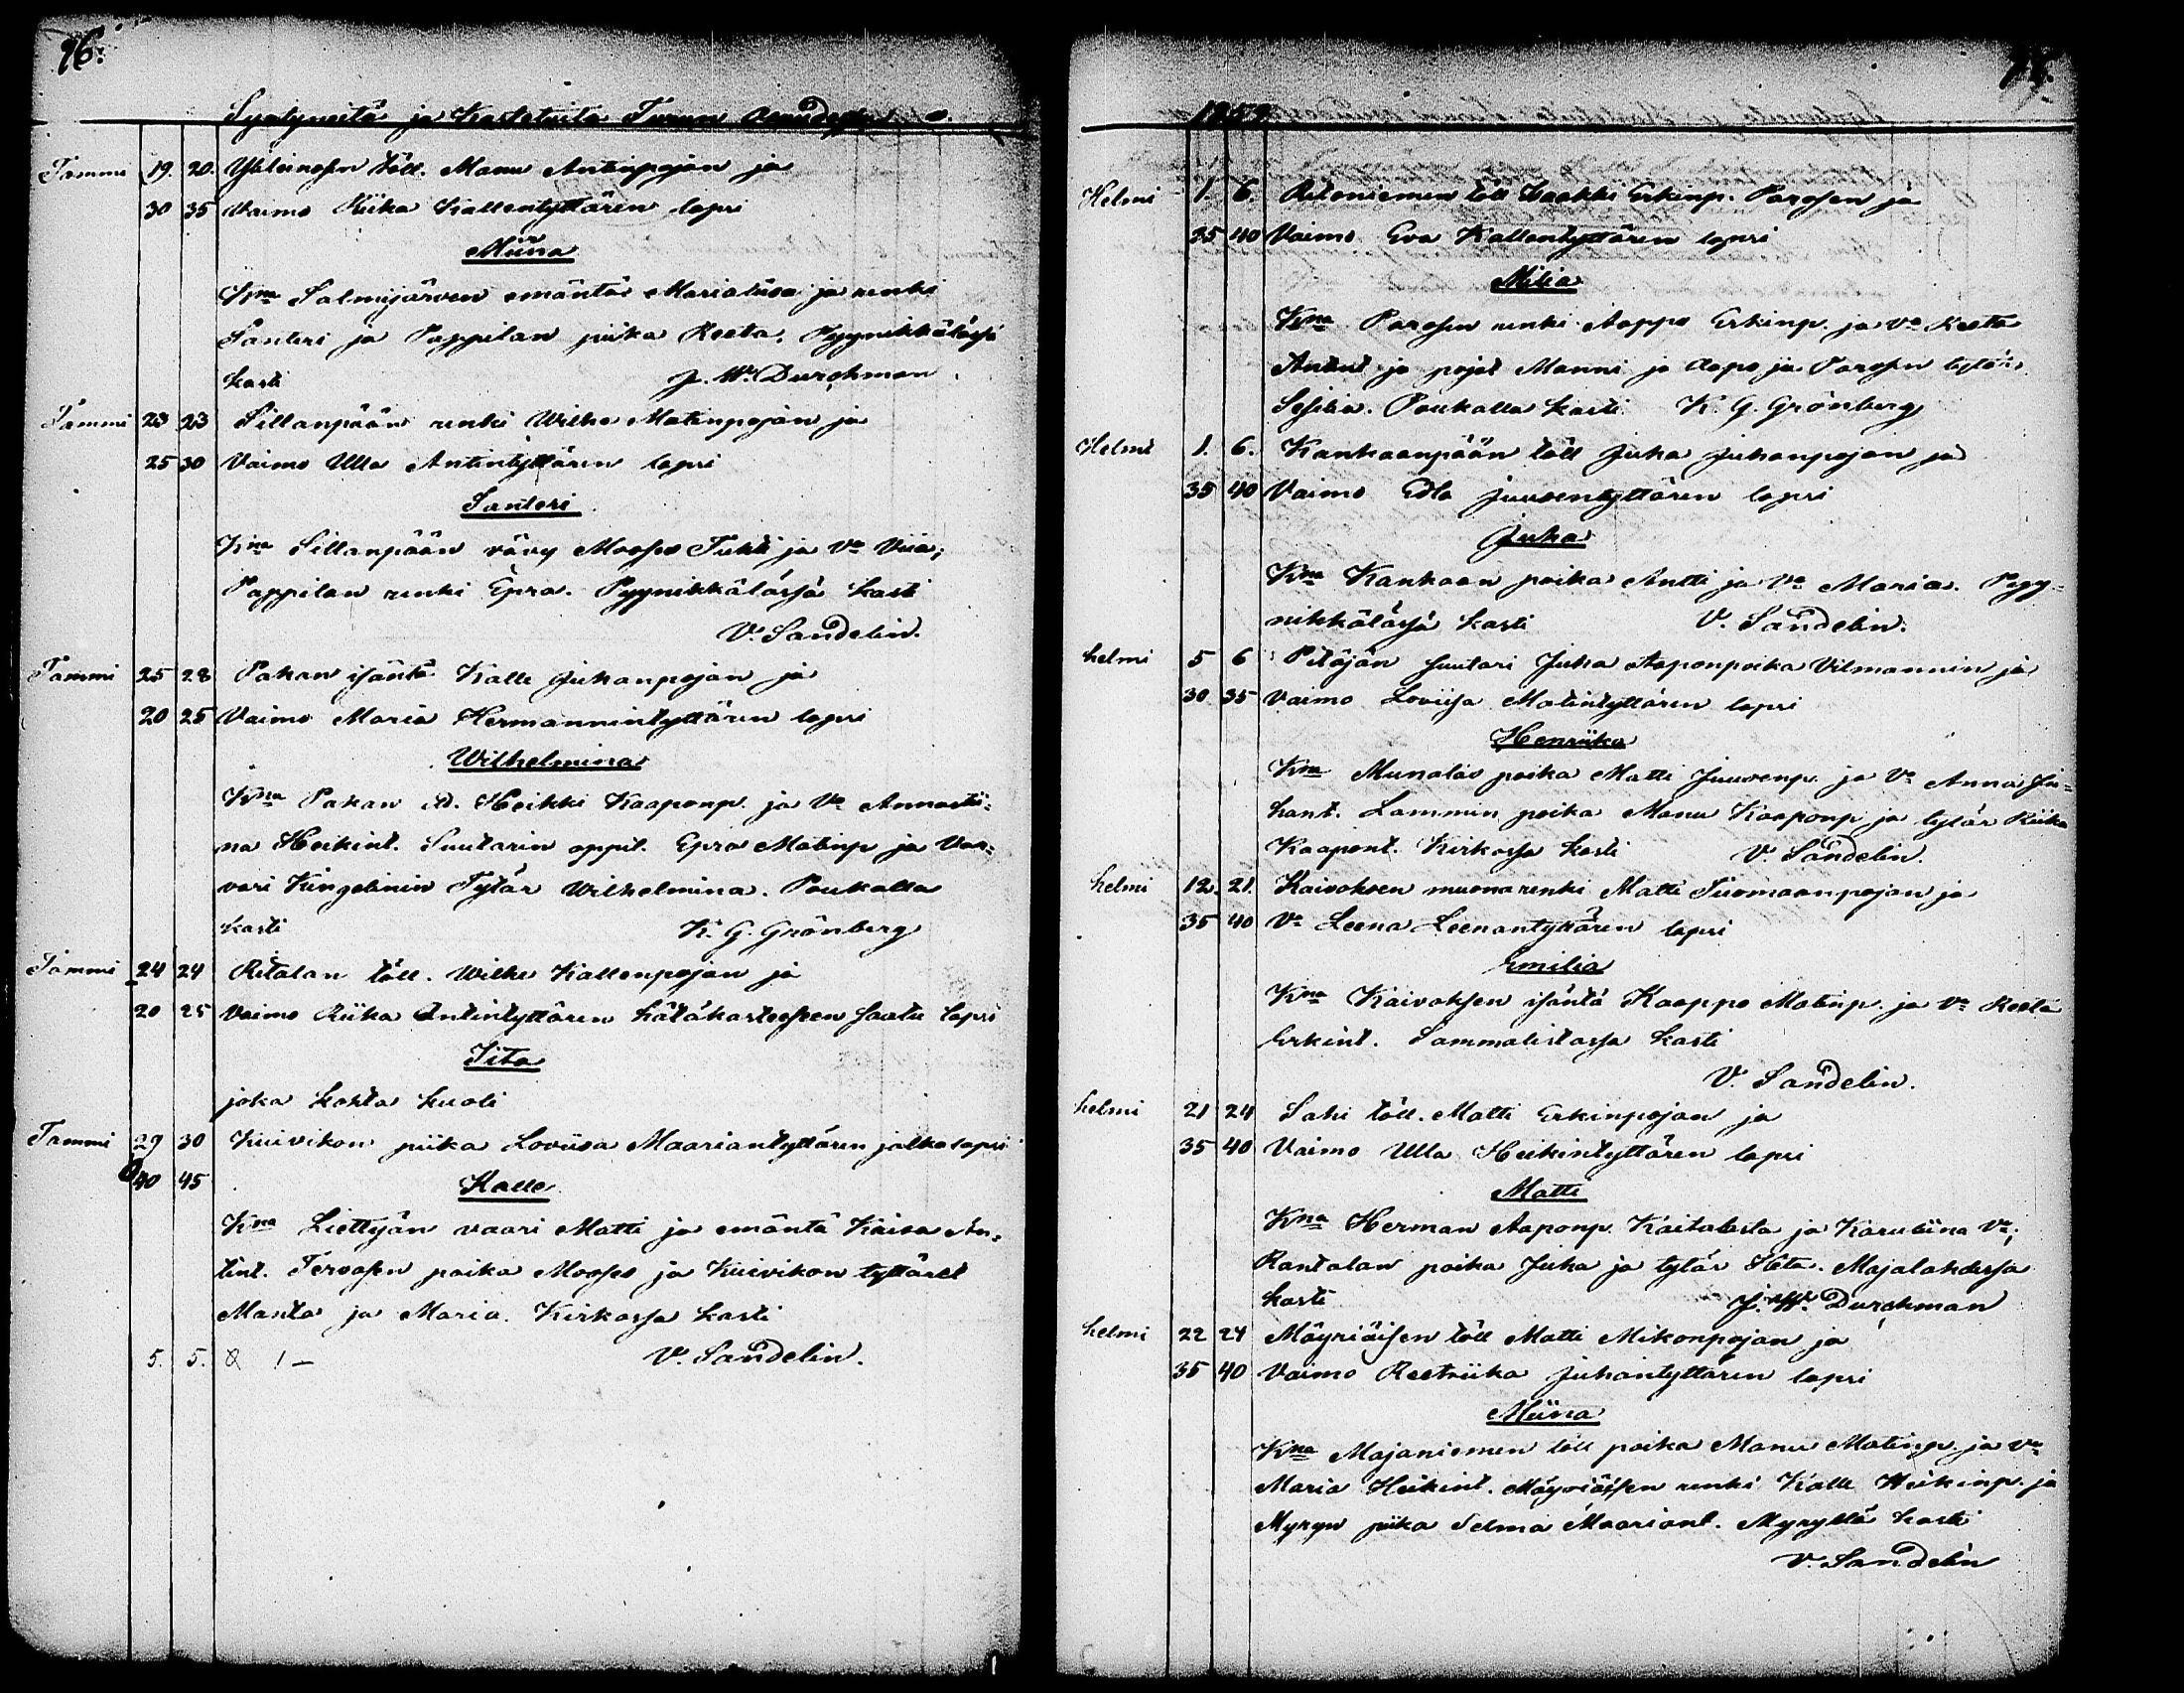 96.
Syntyneitä ja Kastetuita Turun
Tammi 19. 20. Yhteinosen töll. Manu Antinpojan ja
30 35 Vaimo Riika Kallentyttären lapsi
Miina
Kna Salmijärven emäntä Marialiisa ja renki
Santeri ja Pappilan piika Reeta. Pyynikkälässä
kasti J. W. Durchman
Tammi 23 23 Sillanpään renki Wilhe Matinpojan ja
25 30 Vaimo Ulla Antintyttären lapsi
Santeri
Kna Sillanpään vävy Mooses Tukki ja Va Viia;
Pappilan renki Epra. Pyynikkälässä kasti
V. Sandelin.
Tammi 25 28 Pakan isäntä Kalle Juhanpojan ja
20 25 Vaimo Maria Hermannintyttären lapsi
Wilhelmina
Kna Pakan Heikki Kaaponp. ja Va Annastii-
na Heikint. Suutarin oppil. Epra Matinp ja Vaa-
vari Kingelinin Tytär Wilhelmina. Poukalla
kasti K. G. Grönberg
Tammi 24 24 Ritalan töll. Wilhe Kallenpojan ja
20 25 Vaimo Riika Antintyttären hätäkasteessen saatu lapsi
Iita
joka kohta kuoli
Tammi 29 30 Kuivikon piika Loviisa Maariantyttären jalkalapsi
40 45
Kalle
Kna Liettyän vaari Matti ja emäntä Kaisa An-
tint. Tervosen poika Mooses ja Kuivikon tyttäret
Manta ja Maria. Kirkossa kasti
5. 5. 1 – V. Sandelin.
1859
Helmi 1. 6. Ritoniemen töll Erkinp. Parosen ja
35 40 Vaimo Eva Kallentyttären lapsi
Milia
Kna Parosen renki Aappo Erkinp. ja Va Reeta
Antint ja pojat Manni ja Aapo ja Parosen tytär
Sesilia. Poukalla kasti K. G. Grönberg
Helmi 1. 6. Kankaanpään töll Juha Juhanpojan ja
35 40 Vaimo Edla Juusentyttären lapsi
Juha
Kna Kankaan poika Antti ja Va Maria. Pyy-
nikkälässä kasti V. Sandelin.
helmi 5 6 Pitäjän suutari Juha Aaponpoika Vilmannin ja
30 35 Vaimo Loviisa Matintyttären lapsi
Henriika
Kna Munolas poika Matti Juusenp. ja Va Anna Ju-
hant. Lammin poika Manu Kaaponp ja tytär Riika
Kaapont. Kirkossa kasti V. Sandelin.
helmi 12. 21. Kaivoksen muonarenki Matti Tuomaanpojan ja
35 40 Va Leena Leenantyttären lapsi
Emilia
Kna Kaivoksen isäntä Kaappo Matinp. ja Va Reeta
Erkint. Sammalistossa kasti
V. Sandelin.
helmi 21 24 Sahi töll. Matti Erkinpojan ja
35 40 Vaimo Ulla Heikintyttären lapsi
Matti
Kna Herman Aaponp. Kaitalasta ja Karuliina Va;
Rantalan poika Juha ja tytär Heta. Majalahdessa
kasti J. W. Durchman
helmi 22 24 Mäyriäisen töll Matti Mikonpojan ja
35 40 Vaimo Reetriika Juhantyttären lapsi
Miina
Kna Majaniemen töll poika Manu Matinp. ja Va
Maria Heikint. Mäyriäisen renki Kalle Heikinp. ja
Myryn piika Selma Maariant. Myryllä kasti
V. Sandelin